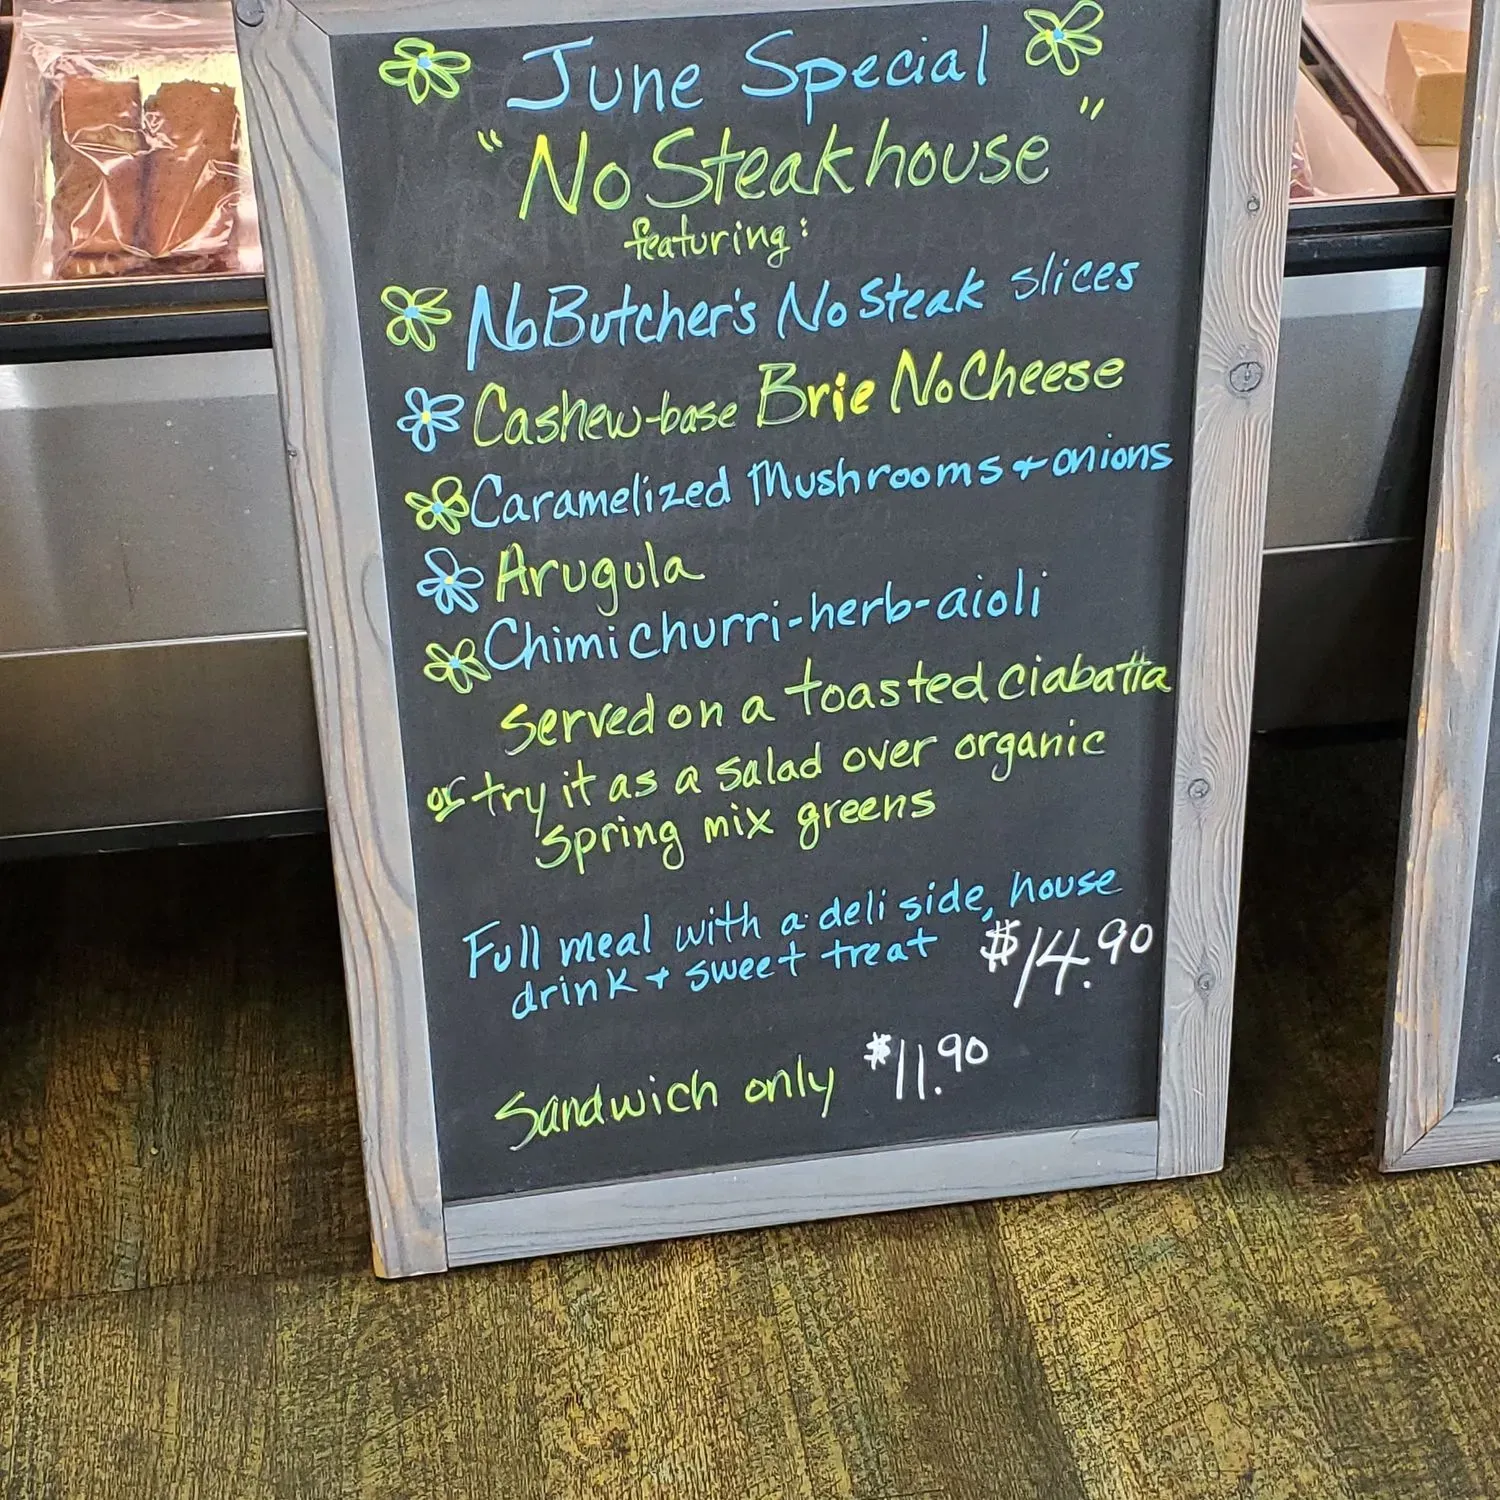 June Special
"No Steakhouse"
featuring:
No Butcher's No Steak slices
Cashew-base Brie No Cheese
Caramelized Mushrooms + onions
Arugula
Chimichurri-herb-aioli
Served on a toasted ciabatta
or try it as a salad over organic
spring mix greens
Full meal with a deli side, house
drink + sweet treat $14.90
Sandwich only $11.90